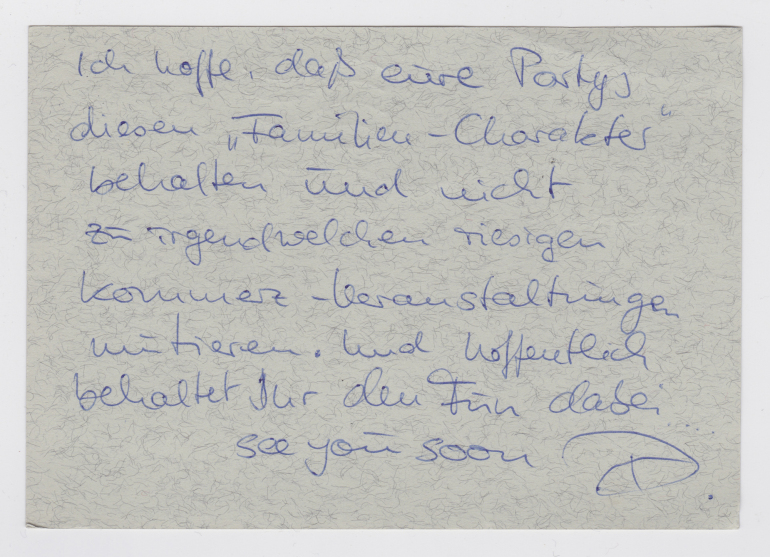 Ich hoffe, daß eure Partys
diesen „Familien-Charakter"
behalten und nicht
zu irgendwelchen riesigen
Kommerz-Veranstaltungen
mutieren. Und hoffentlich
behaltet Ihr den Fun dabei....
see you soon